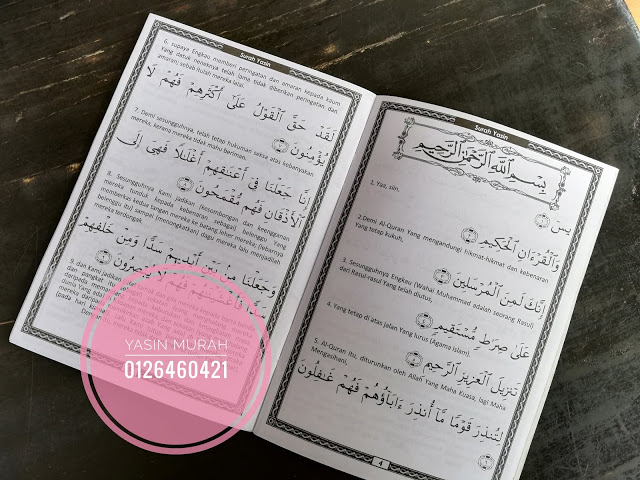 Surah Yasin
بِسْمِ ٱللَّهِ ٱلرَّحْمَٰنِ ٱلرَّحِيمِ
1. Yaa, siin.
يسٓ ١
2.Demi Al-Quran Yang mengandungi hikmat-hikmat dan kebenaran
Yang tetap kukuh,
وَٱلْقُرْءَانِ ٱلْحَكِيمِ ٢
3. Sesungguhnya Engkau (Wahai Muhammad adalah seorang Rasul)
dari Rasul-rasul Yang telah diutus,
إِنَّكَ لَمِنَ ٱلْمُرْسَلِينَ ٣
4. Yang tetap di atas jalan Yang lurus (Agama Islam).
عَلَىٰ صِرَٰطٍ مُّسْتَقِيمٍ ٤
5. Al-Quran itu, diturunkan oleh Allah Yang Maha Kuasa, lagi Maha
Mengasihani,
تَنزِيلَ ٱلْعَزِيزِ ٱلرَّحِيمِ ٥
لِتُنذِرَ قَوْمًا مَّآ أُنذِرَ ءَابَآؤُهُمْ فَهُمْ غَٰفِلُونَ
٦
4
Surah Yasin
6. supaya Engkau memberi peringatan dan amaran kepada kaum
Yang datuk neneknya telah lama tidak diberikan peringatan dan
amaran; sebab itulah mereka lalai.
لَقَدْ حَقَّ ٱلْقَوْلُ عَلَىٰٓ أَكْثَرِهِمْ فَهُمْ لَا
يُؤْمِنُونَ ٧
7. Demi sesungguhnya, telah tetap hukuman seksa atas kebanyakan
mereka, kerana mereka tidak mahu beriman.
إِنَّا جَعَلْنَا فِىٓ أَعْنَٰقِهِمْ أَغْلَٰلًا فَهِىَ إِلَى
ٱلْأَذْقَانِ فَهُم مُّقْمَحُونَ ٨
8. Sesungguhnya Kami jadikan (kesombongan dan keengganan
mereka tunduk kepada kebenaran sebagai) belenggu Yang
memberkas kedua tangan mereka ke batang leher mereka; (lebarnya
belenggu itu) sampai (menongkatkan) dagu mereka lalu menjadilah
mereka terdongak.
وَجَعَلْنَا مِنۢ بَيْنِ أَيْدِيهِمْ سَدًّا وَمِنْ خَلْفِهِمْ
سَدًّا فَأَغْشَيْنَٰهُمْ فَهُمْ لَا يُبْصِرُونَ
9. dan Kami jadikan
YASIN MURAH
0126460421